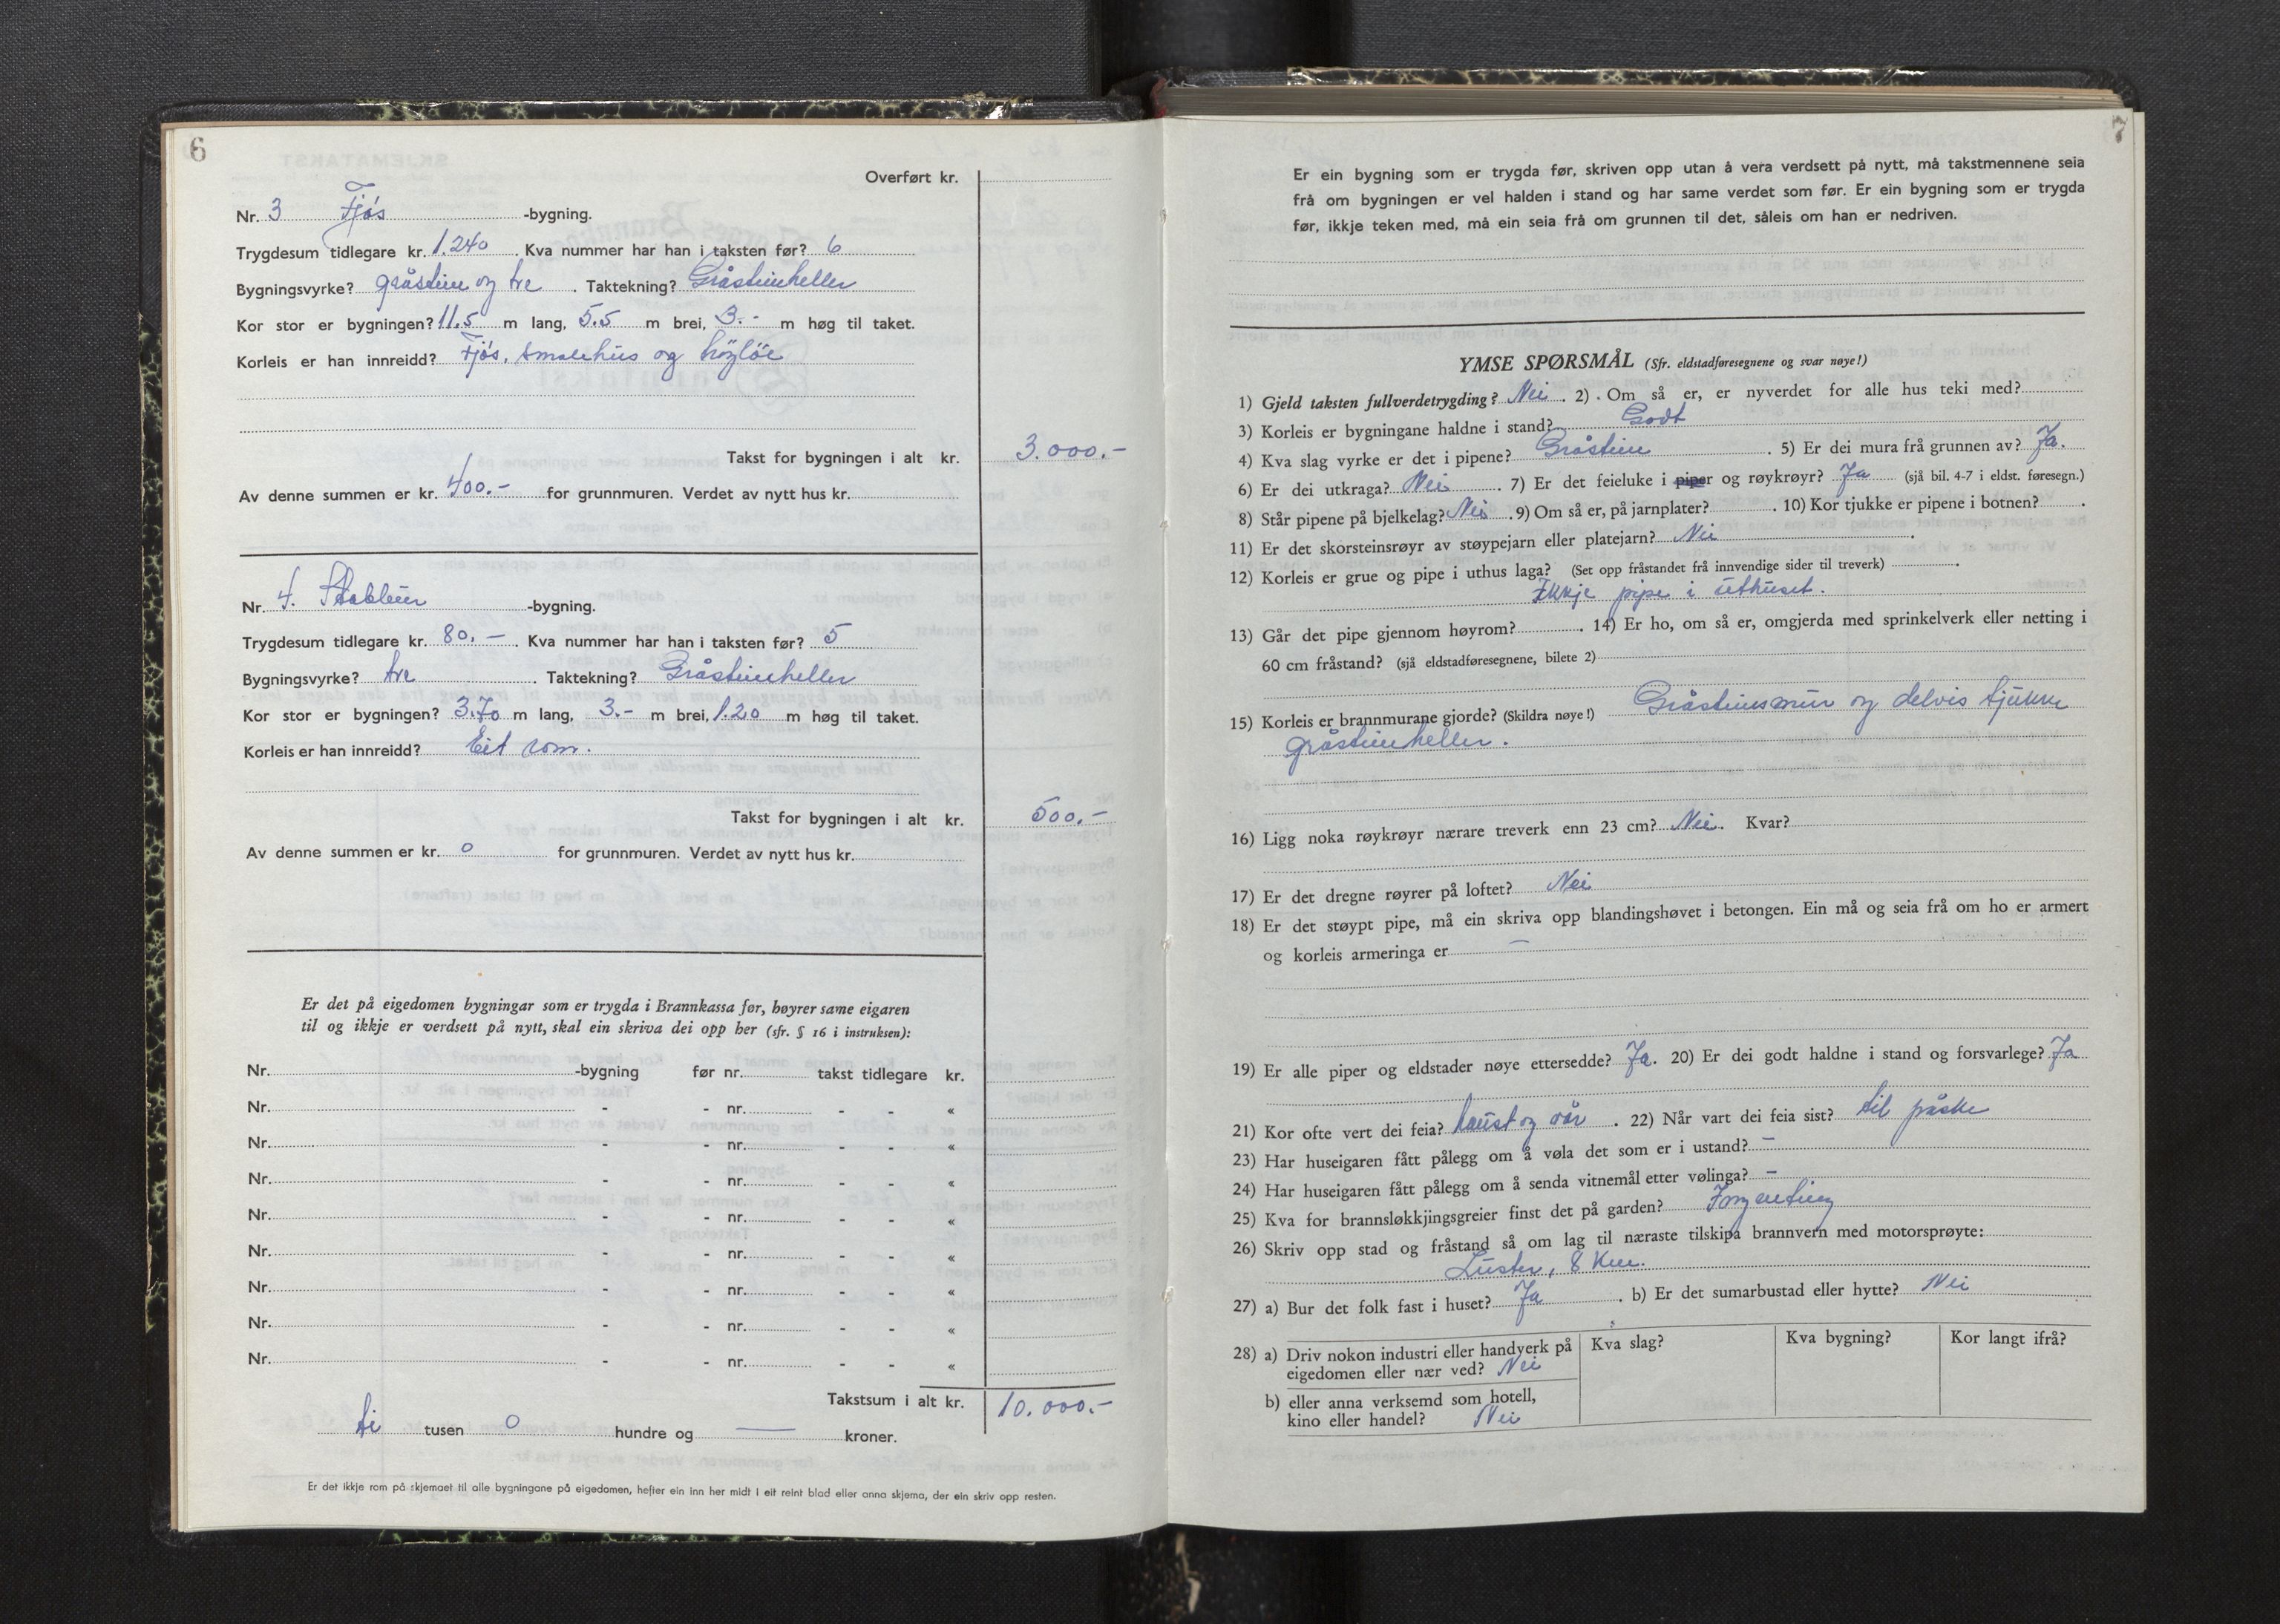 6
Overført kr.
Nr. 3 Fjøs -bygning.
Trygdesum tidlegare kr. 1.240 . Kva nummer har han i taksten før? 6
Bygningsvyrke? gråstein og tre . Taktekning? Gråsteinheller
Kor stor er bygningen? 11.5 m lang, 5.5 m brei, 3.- m høg til taket.
Korleis er han innreidd? Fjøs, smalehus og höyløe
Takst for bygningen i alt kr. 3.000.-
Av denne summen er kr. 400.- for grunnmuren. Verdet av nytt hus kr.
Nr. 4. Stabbur -bygning.
Trygdesum tidlegare kr. 80.- . Kva nummer har han i taksten før? 5
Bygningsvyrke? tre . Taktekning? Gråsteinheller
Kor stor er bygningen? 3.70 m lang, 3.- m brei, 1.20 m høg til taket.
Korleis er han innreidd? Eit rom.
Takst for bygningen i alt kr. 500.-
Av denne summen er kr. 0 for grunnmuren. Verdet av nytt hus kr.
Er det på eigedomen bygningar som er trygda i Brannkassa før, høyrer same eigaren
til og ikkje er verdsett på nytt, skal ein skriva dei opp her (sfr. § 16 i instruksen):
Nr. -bygning før nr. takst tidlegare kr.
Nr. - - nr. - - «
Nr. - - nr. - - «
Nr. - - nr. - - «
Nr. - - nr. - - «
Nr. - - nr. - - «
Nr. - - nr. - - «
Nr. - - nr. - - «
Nr. - - nr. - - «
Takstsum i alt kr. 10.000.-
ti tusen 0 hundre og — kroner.
Er det ikkje rom på skjemaet til alle bygningane på eigedomen, hefter ein inn her midt i eit reint blad eller anna skjema, der ein skriv opp resten.
7
Er ein bygning som er trygda før, skriven opp utan å vera verdsett på nytt, må takstmennene seia
frå om bygningen er vel halden i stand og har same verdet som før. Er ein bygning som er trygda
før, ikkje teken med, må ein seia frå om grunnen til det, såleis om han er nedriven.
YMSE SPØRSMÅL (Sfr. eldstadføresegnene og svar nøye!)
1) Gjeld taksten fullverdetrygding? Nei . 2) . Om så er, er nyverdet for alle hus teki med?
3) Korleis er bygningane haldne i stand? Godt
4) Kva slag vyrke er det i pipene? Gråstein . 5) Er dei mura frå grunnen av? Ja.
6) Er dei utkraga? Nei . 7) Er det feieluke i piper og røykrøyr? Ja (sjå bil. 4-7 i eldst. føresegn.)
8) Står pipene på bjelkelag? Nei . 9) Om så er, på jarnplater? . 10) Kor tjukke er pipene i botnen? .
11) Er det skorsteinsrøyr av støypejarn eller platejarn? Nei .
12) Korleis er grue og pipe i uthus laga? (Set opp fråstandet frå innvendige sider til treverk) .
Ikkje pipe i uthuset.
13) Går det pipe gjennom høyrom? . 14) Er ho, om så er, omgjerda med sprinkelverk eller netting i
60 cm fråstand? (sjå eldstadføresegnene, bilete 2)
15) Korleis er brannmurane gjorde? (Skildra nøye!) Gråsteinsmur og delvis tjukke
gråsteinheller.
16) Ligg noka røykrøyr nærare treverk enn 23 cm? Nei. Kvar?
17) Er det dregne røyrer på loftet? Nei
18) Er det støypt pipe, må ein skriva opp blandingshøvet i betongen. Ein må og seia frå om ho er armert
og korleis armeringa er —
19) Er alle piper og eldstader nøye ettersedde? Ja. 20) Er dei godt haldne i stand og forsvarlege? Ja
21) Kor ofte vert dei feia? haust og vår . 22) Når vart dei feia sist? til påske
23) Har huseigaren fått pålegg om å vøla det som er i ustand? —
24) Har huseigaren fått pålegg om å senda vitnemål etter vølinga? —
25) Kva for brannsløkkjingsgreier finst det på garden? Ingenting
26) Skriv opp stad og fråstand så om lag til næraste tilskipa brannvern med motorsprøyte:
Luster, 8 km.
27) a) Bur det folk fast i huset? Ja . b) Er det sumarbustad eller hytte? Nei
28) a) Driv nokon industri eller handverk på eigedomen eller nær ved? Nei
Kva slag? Kva bygning? Kor langt ifrå?
b) eller anna verksemd som hotell,
kino eller handel? Nei